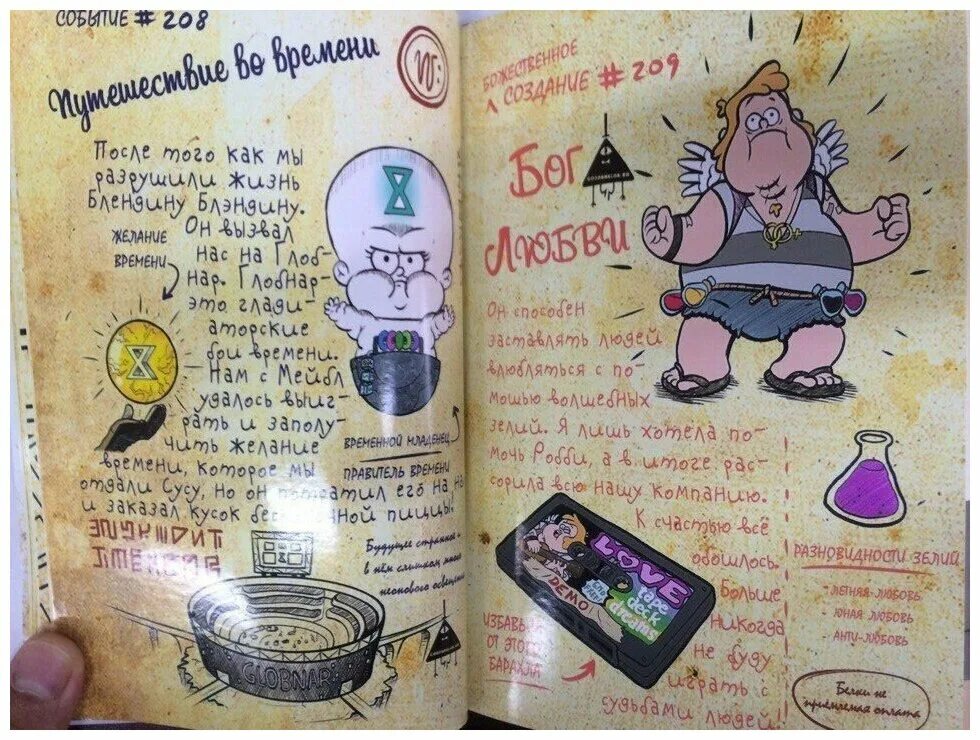 СОБЫТИЕ # 208
Путешествие во времени
После того как мы
разрушили жизнь
Блендину Блэндину.
Он вызвал
нас на Глоб-
нар. Глобнар-
это глади-
аторские
бои времени.
Нам с Мейбл
удалось выиг-
рать и заполу-
чить желание
времени, которое мы
отдали Сусу, но он потратил его на н
и заказал кусок бес нной пиццы.
ЖЕЛАНИЕ
ВРЕМЕНИ
ВРЕМЕННОЙ МЛАДЕНЕЦ
ПРАВИТЕЛЬ ВРЕМЕНИ
Будущее странное -
в нём слишком много
неонового освещения
GLOBNAR
БОЖЕСТВЕННОЕ
СОЗДАНИЕ # 209
БОГ
ЛЮБВИ
Он способен
заставлять людей
влюбляться с по-
мощью волшебных
зелий. Я лишь хотела по-
мочь Робби, а в итоге рас-
сорила всю нашу компанию.
К счастью всё
обошлось.
Больше
Никогда
Не буду
играть с
судьбами людей!!
LOVE
tape
deck
dreams
DEMO
ИЗБАВЬ
ОТ ЭТОГО
БАРАХЛА
РАЗНОВИДНОСТИ ЗЕЛИЙ
- ЛЕТНЯЯ ЛЮБОВЬ
- ЮНАЯ ЛЮБОВЬ
- АНТИ-ЛЮБОВЬ
Белки не
приемлемая оплата